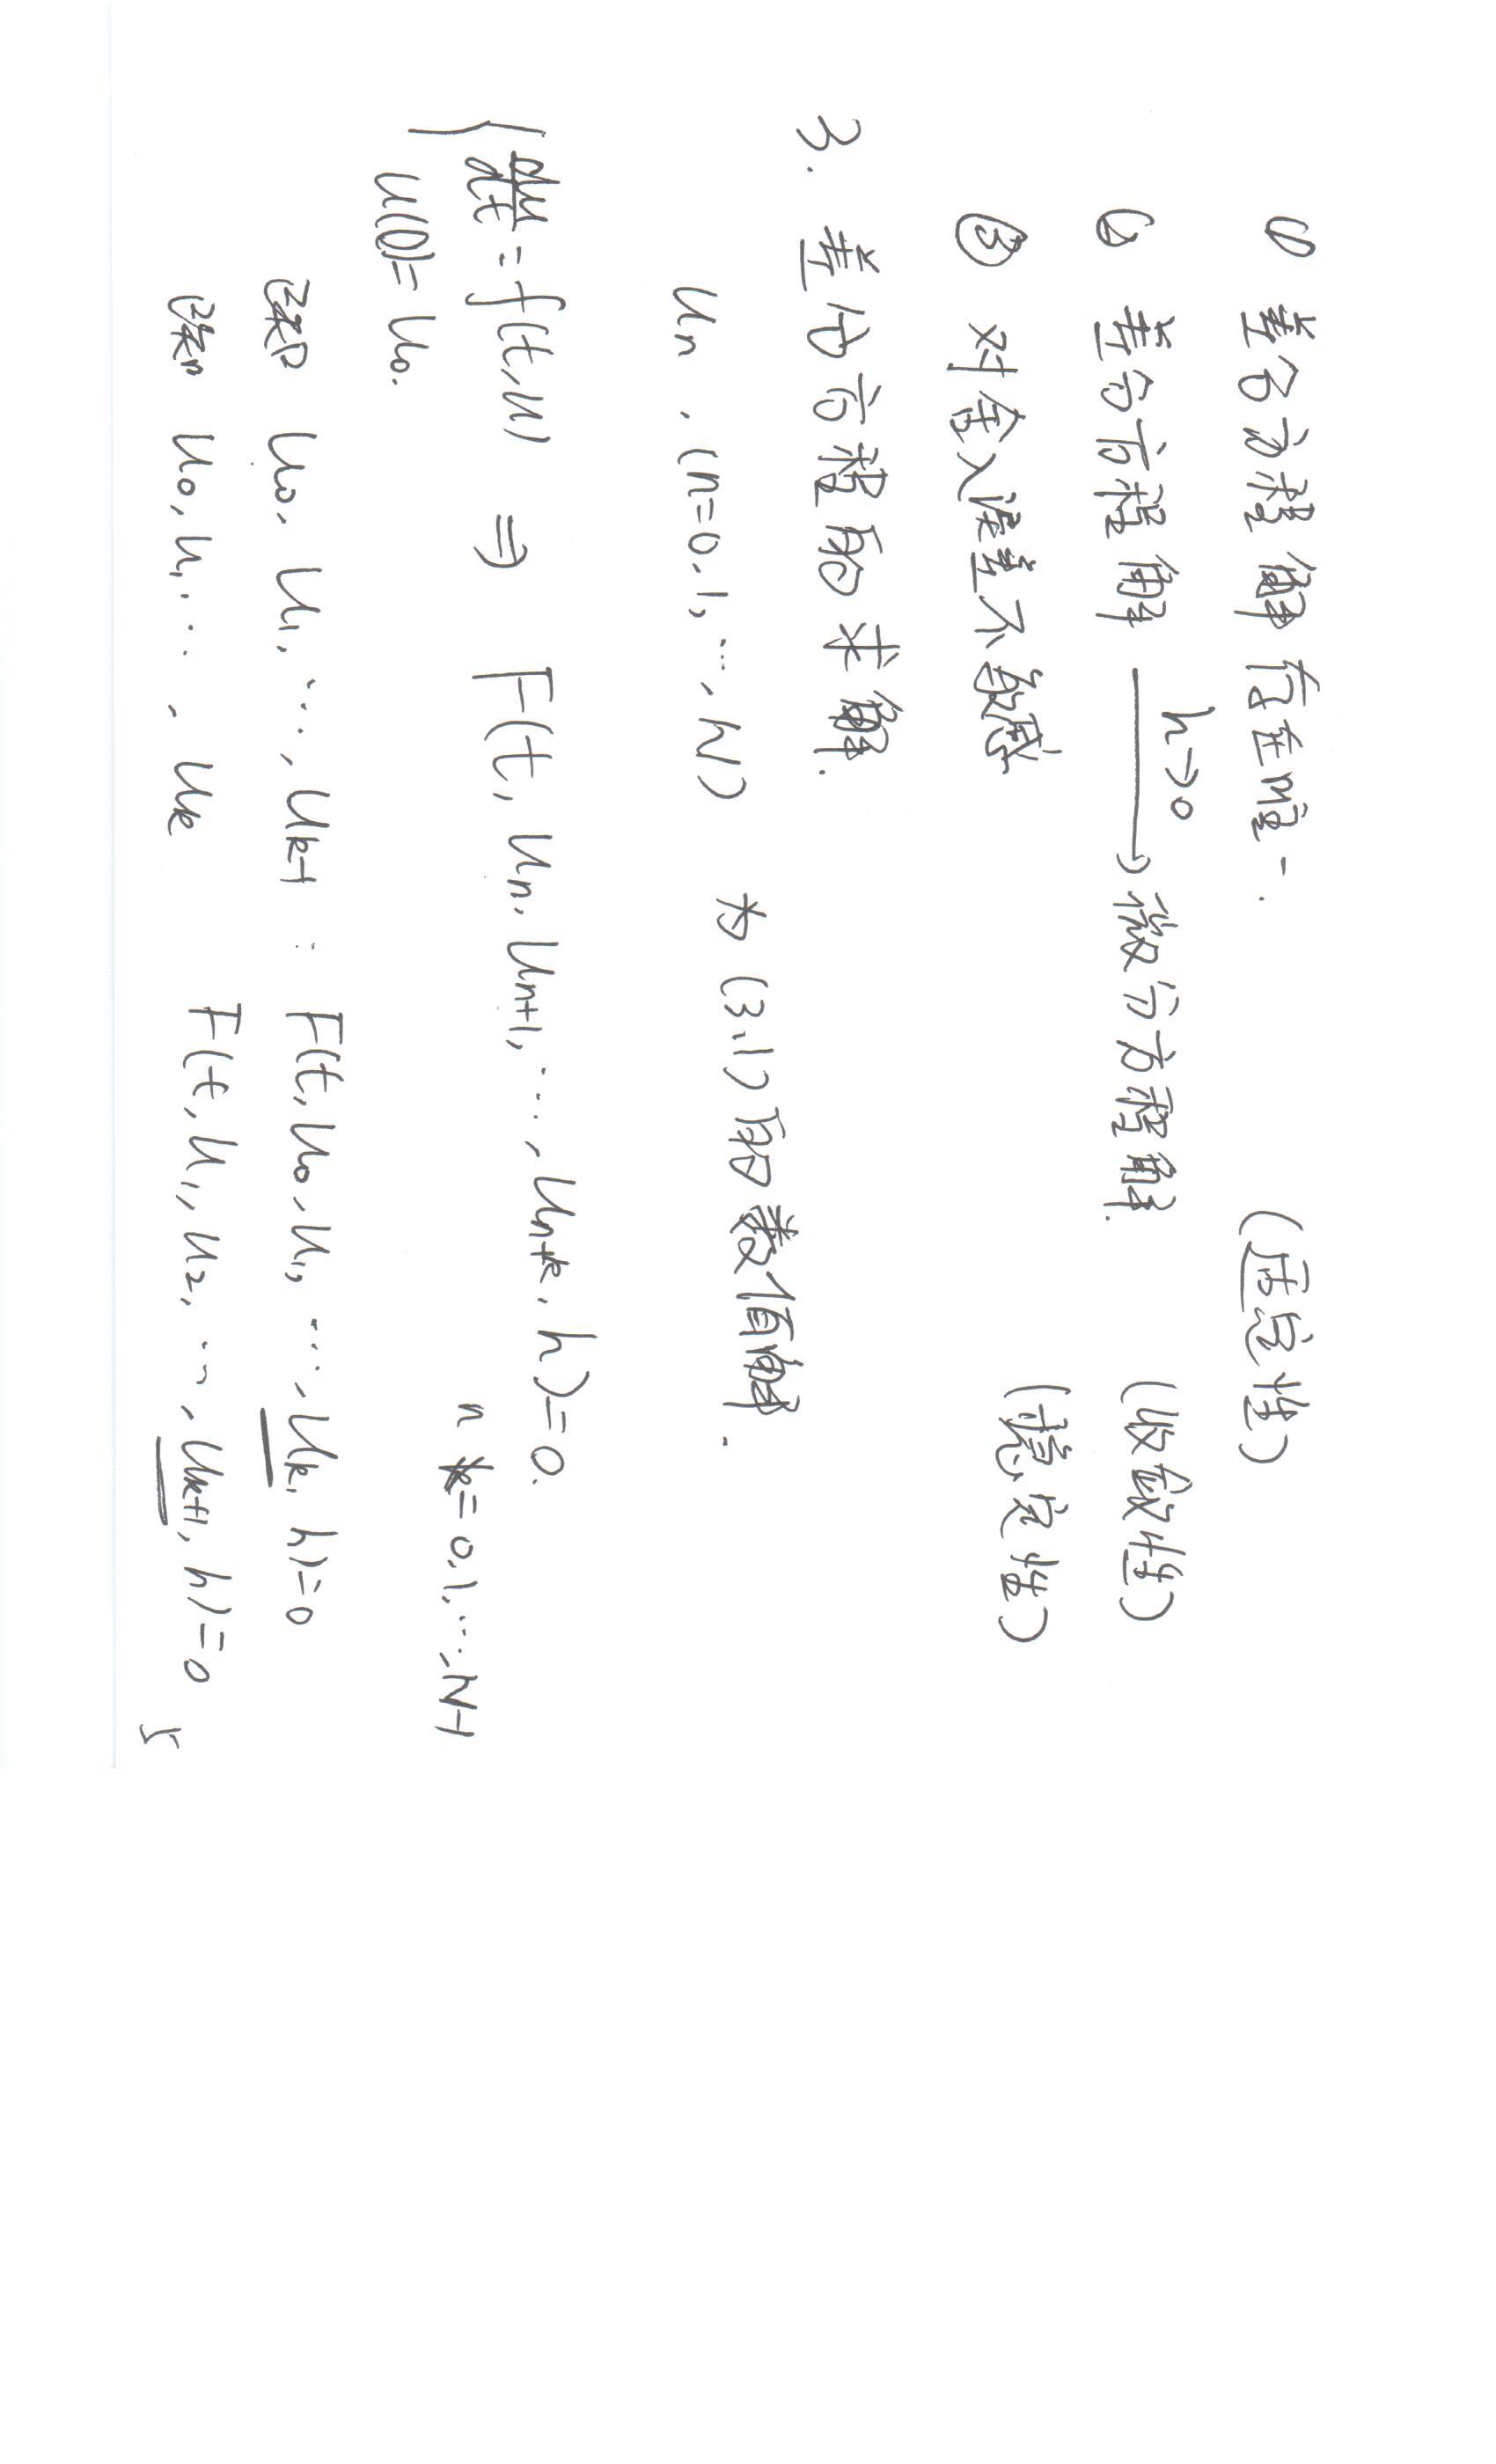 ① 差分方程解存在唯一. (适定性)
② 差分方程解 \xrightarrow{h→0} 微分方程解. (收敛性)
③ 对舍入误差不敏感 (稳定性)
3. 差分方程的求解.
u_n , (n=0,1,…,N) 为 (3.1) 的数值解.
{ du/dt = f(t,u) ⇒ F(t, u_n, u_{n+1}, …, u_{n+k}, h)=0.
n = 0,1,…,N-1
u(0)= u_0.
已知 u_0, u_1, …, u_{k-1} : F(t, u_0, u_1, …, u_k, h)=0
已知 u_0, u_1, …, u_k F(t, u_1, u_2, …, u_{k+1}, h)=0
5